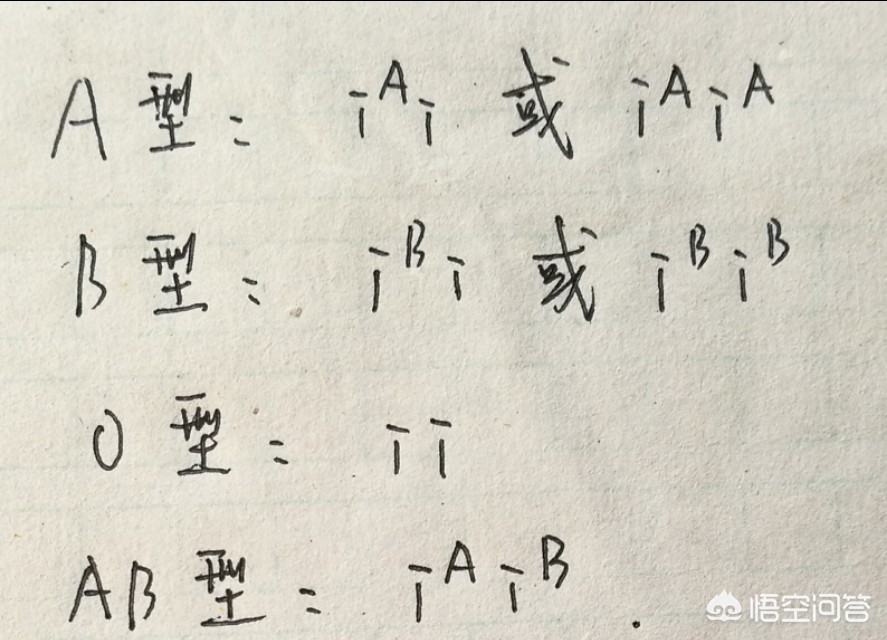 A型: i^A i 或 i^A i^A
B型: i^B i 或 i^B i^B
O型: i i
AB型: i^A i^B.
悟空问答